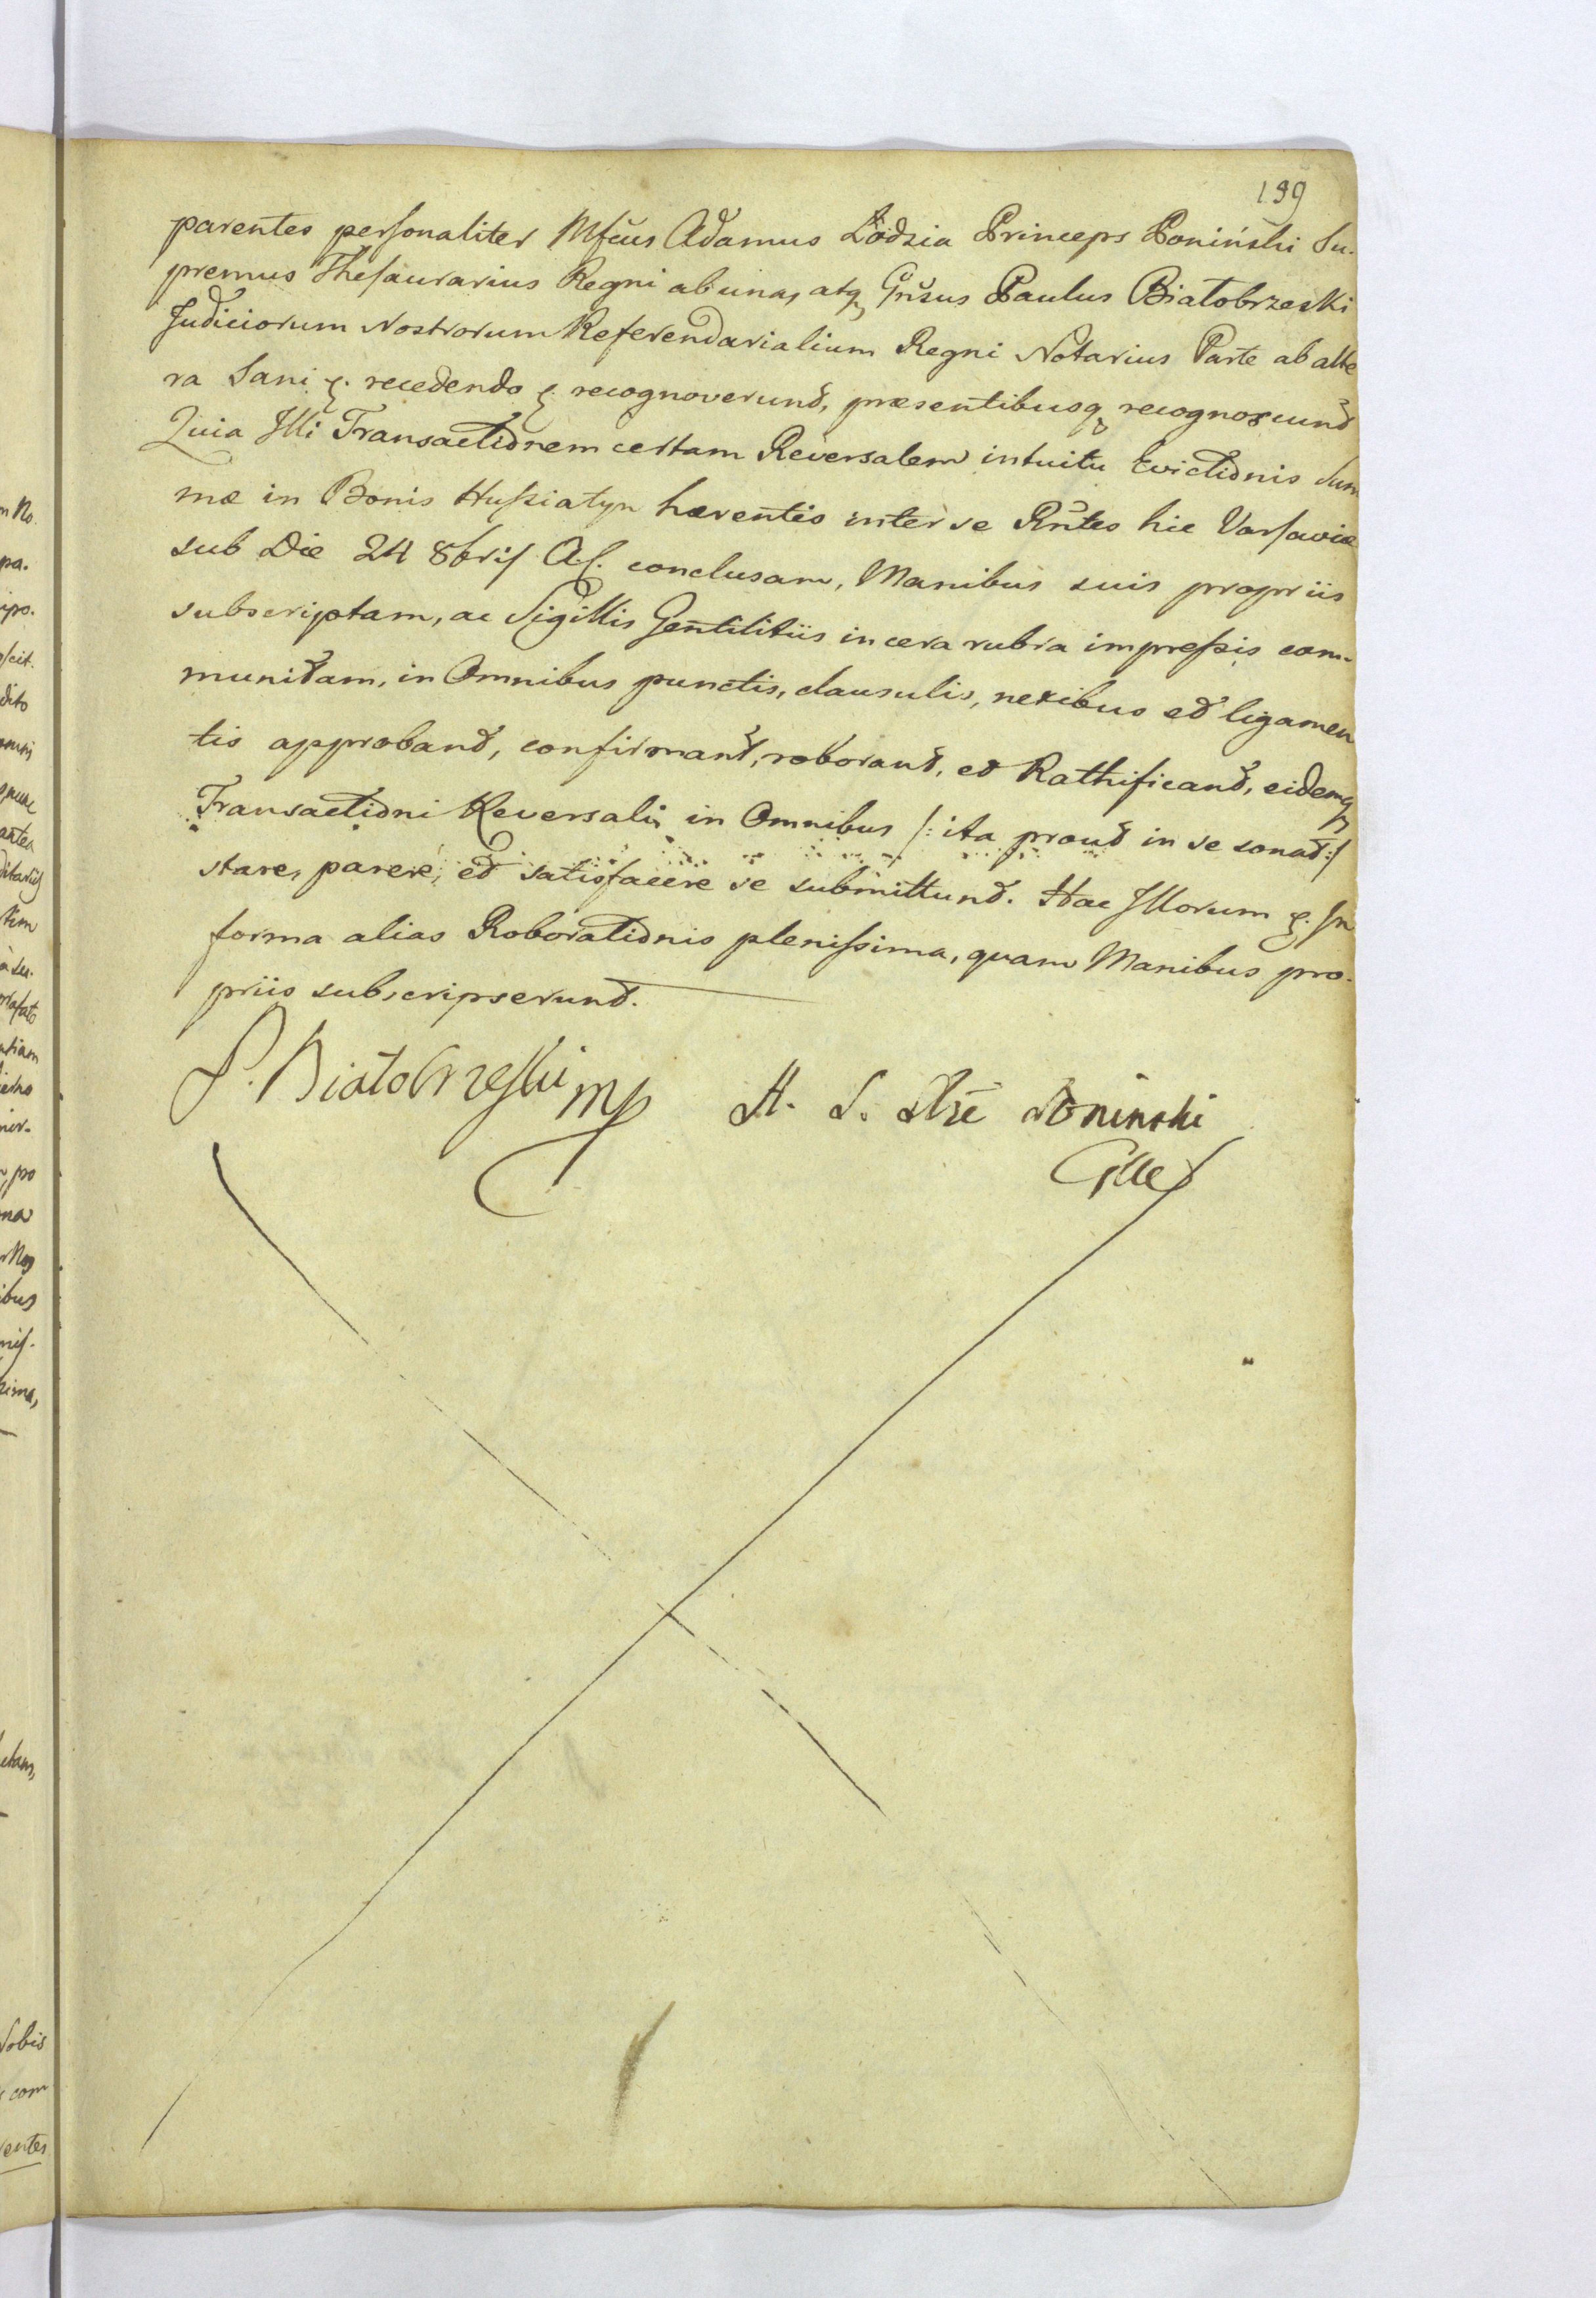 199
parentes personaliter Mfcus Adamus Łodzia Princeps Poniński Su-
premus Thesaurarius Regni ab una, atq Gnsus Paulus Białobrzeski
Judiciorum Nostrorum Referendarialium Regni Notarius Parte ab alte
ra Sani &. recedendo &. recognoverunt, praesentibusq recognoscunt
Quia Illi Transactionem certam Reversalem intuitu Evictionis Sum
mæ in Bonis Hussiatyn hærentis inter se Rntes hic Varsaviæ
sub Die 24 8bris A.C. conclusam, Manibus suis propriis
subscriptam, ac Sigillis Gentilitiis in cera rubra impressis com-
munitam, in Omnibus punctis, clausulis, nexibus et ligamen
tis approbant, confirmant, roborant, et Rathificant, eidemq
Transactioni Reversali in Omnibus /: ita prout in se sonat :/
stare, parere, et satisfacere se submittunt. Hac Illorum &. In
forma alias Roborationis plenissima, quam Manibus pro-
priis subscripserunt.
P. Białobrzeski mp
A. Ł. Xże Poninski